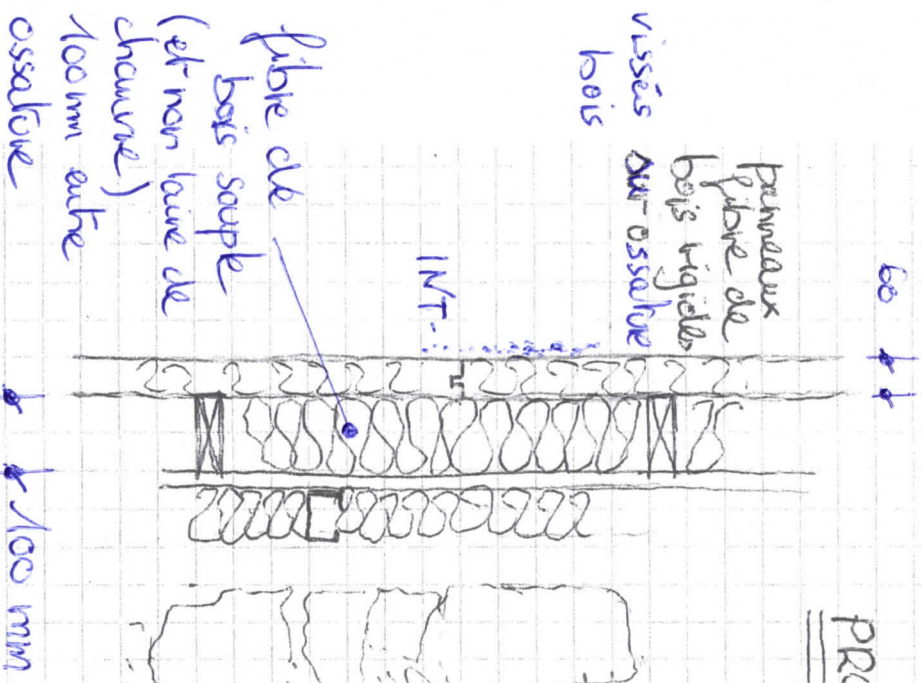 60
panneaux
fibre de
bois rigides
vissés sur ossature
bois
INT.
fibre de
bois souple
(et non laine de
chanvre)
100 mm entre
ossature
100 mm